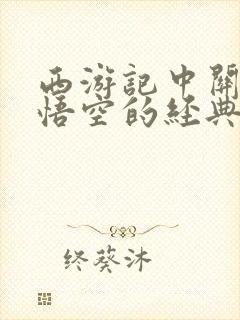 西游記中關
悟空的經典
终葵沐